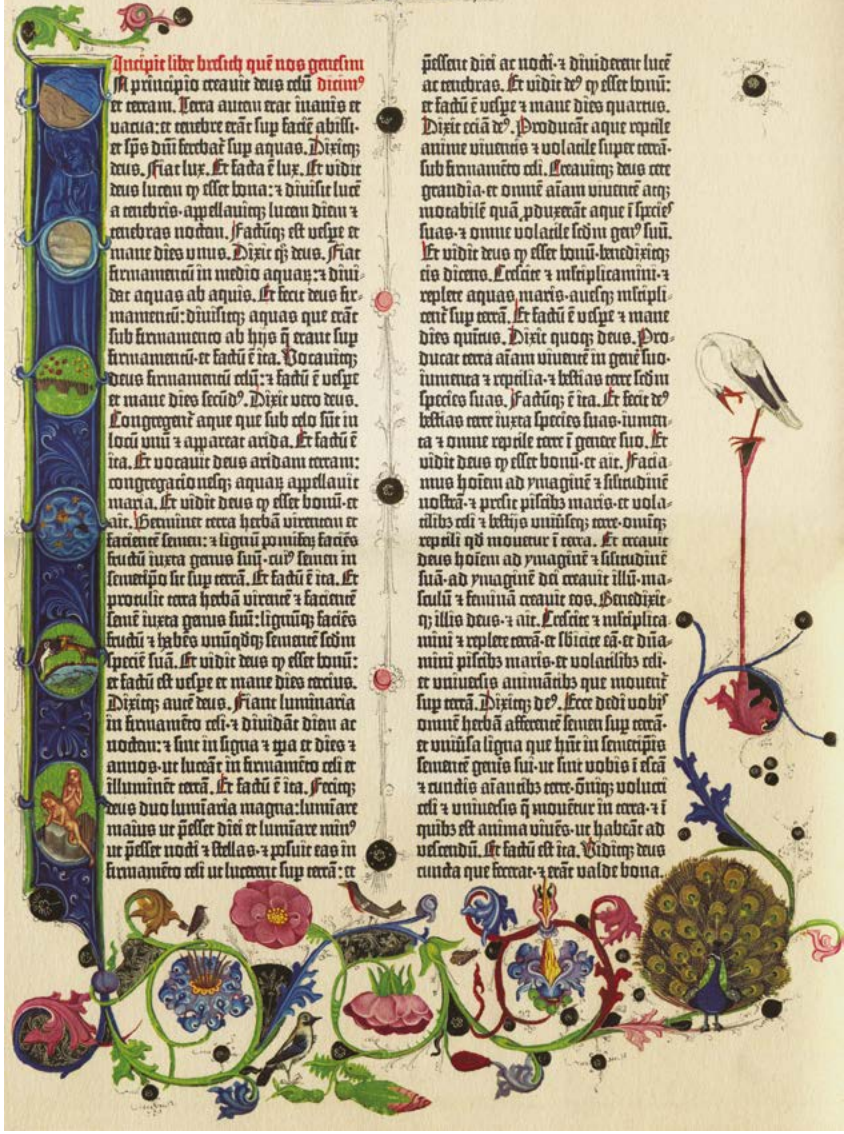 Incipit liber bresith quē nos genesim
N principio creavit deus celū dicimꝰ
et terram. Terra autem erat inanis et
vacua: et tenebre erāt sup faciē abissi.
et sp̄s dñi ferebat᷑ sup aquas. Dixitqꝫ
deus. Fiat lux. Et facta ē lux. Et vidit
deus lucem ꝙ esset bona: ⁊ divisit lucē
a tenebris. appellavitqꝫ lucem diem ⁊
tenebras noctem. Factūqꝫ est vespe et
mane dies vnus. Dixit qꝫ deus. Fiat
firmamentū in medio aquaꝝ: ⁊ divi⸗
dat aquas ab aquis. Et fecit deus fir⸗
mamentū: divisitqꝫ aquas que erāt
sub firmamento ab hijs q̄ erant sup
firmamentū. et factū ē ita. Vocavitqꝫ
deus firmamentū celū: ⁊ factū ē vespe
et mane dies secūdꝰ. Dixit vero deus.
Congregent᷑ aque que sub celo sūt in
locū vnū ⁊ appareat arida. Et factū ē
ita. Et vocavit deus aridam terram:
congregacionesqꝫ aquaꝝ appellavit
maria. Et vidit deus ꝙ esset bonū. et
ait. Germinet terra herbā virentem et
facientē semen: ⁊ lignū pomifeꝝ faciēs
fructū iuxta genus suū. cuiꝰ semen in
semetip̄o sit sup terrā. Et factū ē ita. Et
protulit terra herbā virentē ⁊ facientē
semē iuxta genus suū: lignūqꝫ faciēs
fructū ⁊ habēs vnūqdqꝫ sementē scdm
speciē suā. Et vidit deus ꝙ esset bonū:
et factū est vespe et mane dies tercius.
Dixitqꝫ autē deus. Fiant luminaria
in firmamēto celi. ⁊ dividāt diem ac
noctem: ⁊ sint in signa ⁊ tp̄a et dies ⁊
annos. ut luceāt in firmamēto celi et
illuminēt terrā. Et factū ē ita. Fecitqꝫ
deus duo lumīaria magna: lumīare
maius ut p̄esset diei et lumīare minꝰ
ut p̄esset nocti ⁊ stellas. ⁊ posuit eas in
firmamēto celi ut lucerent sup terrā: et
p̄essent diei ac nocti. ⁊ dividerent lucē
ac tenebras. Et vidit deꝰ ꝙ esset bonū:
et factū ē vespe ⁊ mane dies quartus.
Dixit eciā deꝰ. Producāt aque reptile
anime viventis ⁊ volatile super terrā.
sub firmamēto celi. Creavitqꝫ deus cete
grandia. et omnē aīam viventē atqꝫ
motabilē quā ꝓduxerāt aque ī species
suas. ⁊ omne volatile scdm genꝰ suū.
Et vidit deus ꝙ esset bonū. benedixitqꝫ
eis dicens. Crescite ⁊ m̄ltiplicamini. ⁊
replete aquas maris. avesqꝫ m̄ltipli⸗
cent᷑ sup terrā. Et factū ē vespe ⁊ mane
dies quītus. Dixit quoqꝫ deus. Pro⸗
ducat terra aīam viventē in genē suo.
iumenta ⁊ reptilia. ⁊ bestias terre scdm
species suas. Factūqꝫ ē ita. Et fecit deꝰ
bestias terre iuxta species suas. iumen⸗
ta ⁊ omne reptile terre ī genere suo. Et
vidit deus ꝙ esset bonū. et ait. Facia⸗
mus hoīem ad ymaginē ⁊ sīlitudinē
nostrā. ⁊ presit piscibꝫ maris. et vola⸗
tilibꝫ celi ⁊ bestijs vnīuseqꝫ terre. omīqꝫ
reptili qd movetur ī terra. Et creavit
deus hoīem ad ymaginē ⁊ sīlitudinē
suā. ad ymaginē dei creavit illū. ma⸗
sculū ⁊ feminā creavit eos. Benedixit⸗
qꝫ illis deus. ⁊ ait. Crescite ⁊ m̄ltiplica⸗
mini ⁊ replete terrā. et sbicite eā. et dn̄a⸗
mini piscibꝫ maris. et volatilibꝫ celi.
et vniversis animātibꝫ que movent᷑
sup terrā. Dixitqꝫ deꝰ. Ecce dedi vobis
omnē herbā afferentē semen sup terrā.
et vniūsa ligna que hn̄t in semetip̄is
sementē genis sui. ut sint vobis ī escā
⁊ cunctis aīantibꝫ terre. ōniqꝫ volucri
celi ⁊ vniversis q̄ moventur in terra. ⁊ ī
quibꝫ est anima vivēs. ut habeāt ad
vescendū. Et factū est ita. Viditqꝫ deus
cuncta que fecerat. ⁊ erāt valde bona.